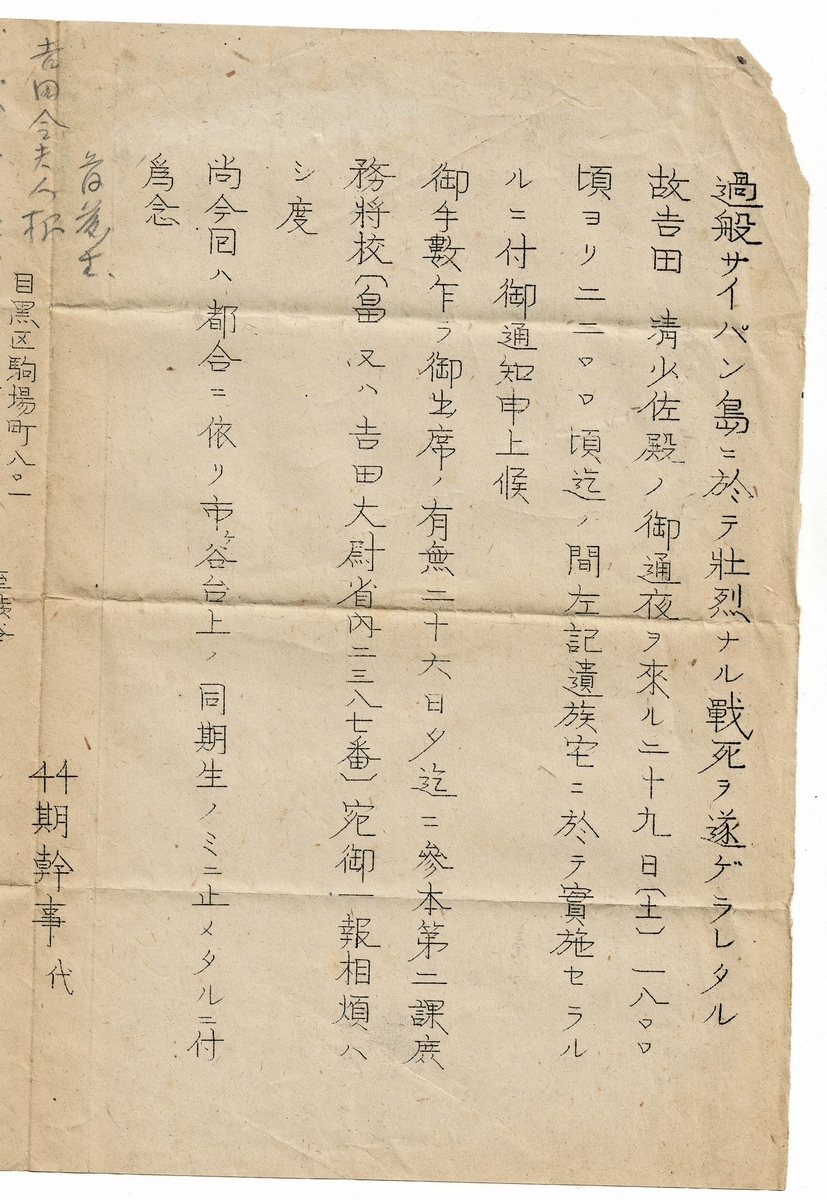 過般サイパン島ニ於テ壯烈ナル戰死ヲ遂ゲラレタル
故吉田 清少佐殿ノ御通夜ヲ來ル二十九日(土)一八〇〇
頃ヨリ二二〇〇頃迄ノ間左記遺族宅ニ於テ實施セラル
ルニ付御通知申上候
御手數乍ラ御出席ノ有無二十六日夕迄ニ參本第二課庶
務將校(畠 又ハ吉田大尉省內二三八七番)宛御一報相煩ハ
シ度
尚今回ハ都合ニ依リ市ヶ谷台上ノ同期生ノミニ止メタルニ付
爲念
44期幹事代
吉田令夫人
目黒区駒場町八〇一